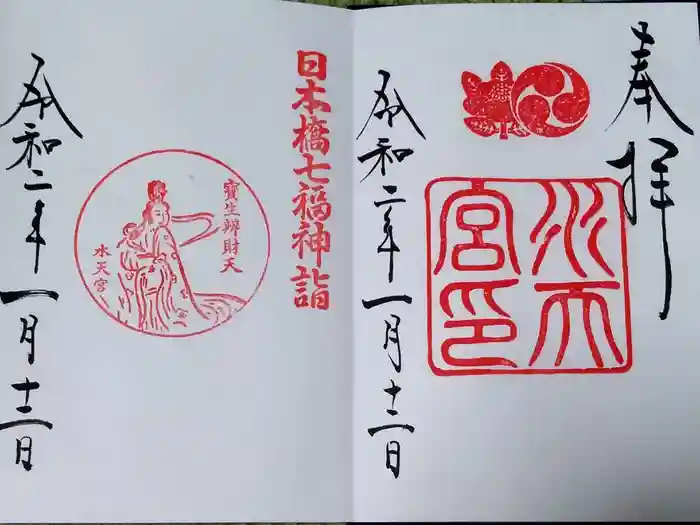 奉拝
水天宮印
令和二年一月十二日
日本橋七福神詣
寶生辨財天
水天宮
令和二年一月十二日